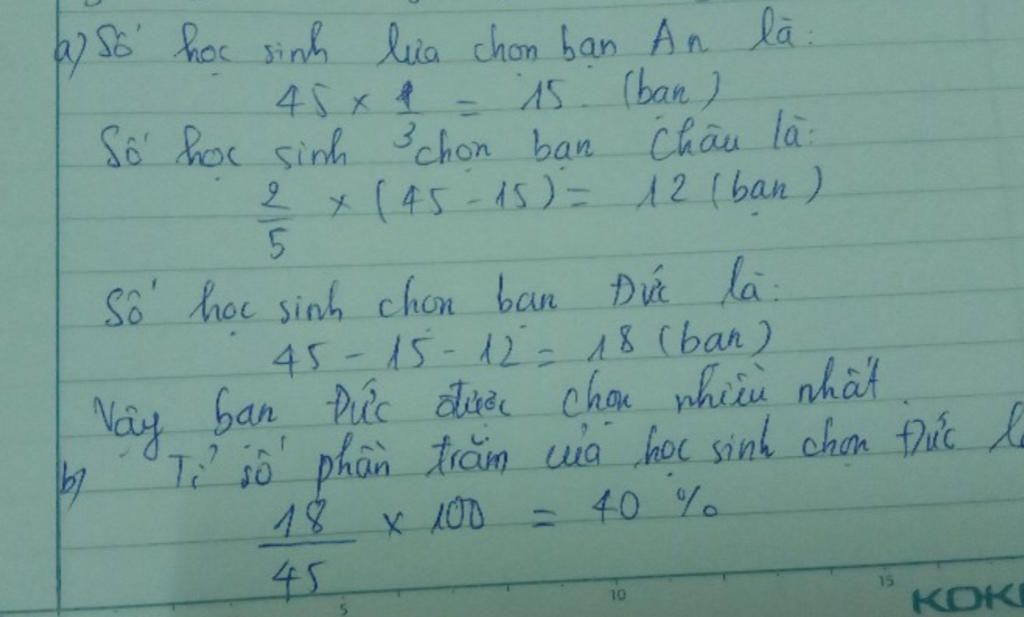 a) Số học sinh lựa chọn bạn An là:
45 × 1/3 = 15 (bạn)
Số học sinh chọn bạn Châu là:
2/5 × (45 - 15) = 12 (bạn)
Số học sinh chọn bạn Đức là:
45 - 15 - 12 = 18 (bạn)
Vậy bạn Đức được chọn nhiều nhất.
b) Tỉ số phần trăm của học sinh chọn Đức l
18/45 × 100 = 40 %
5 10 15 KOK